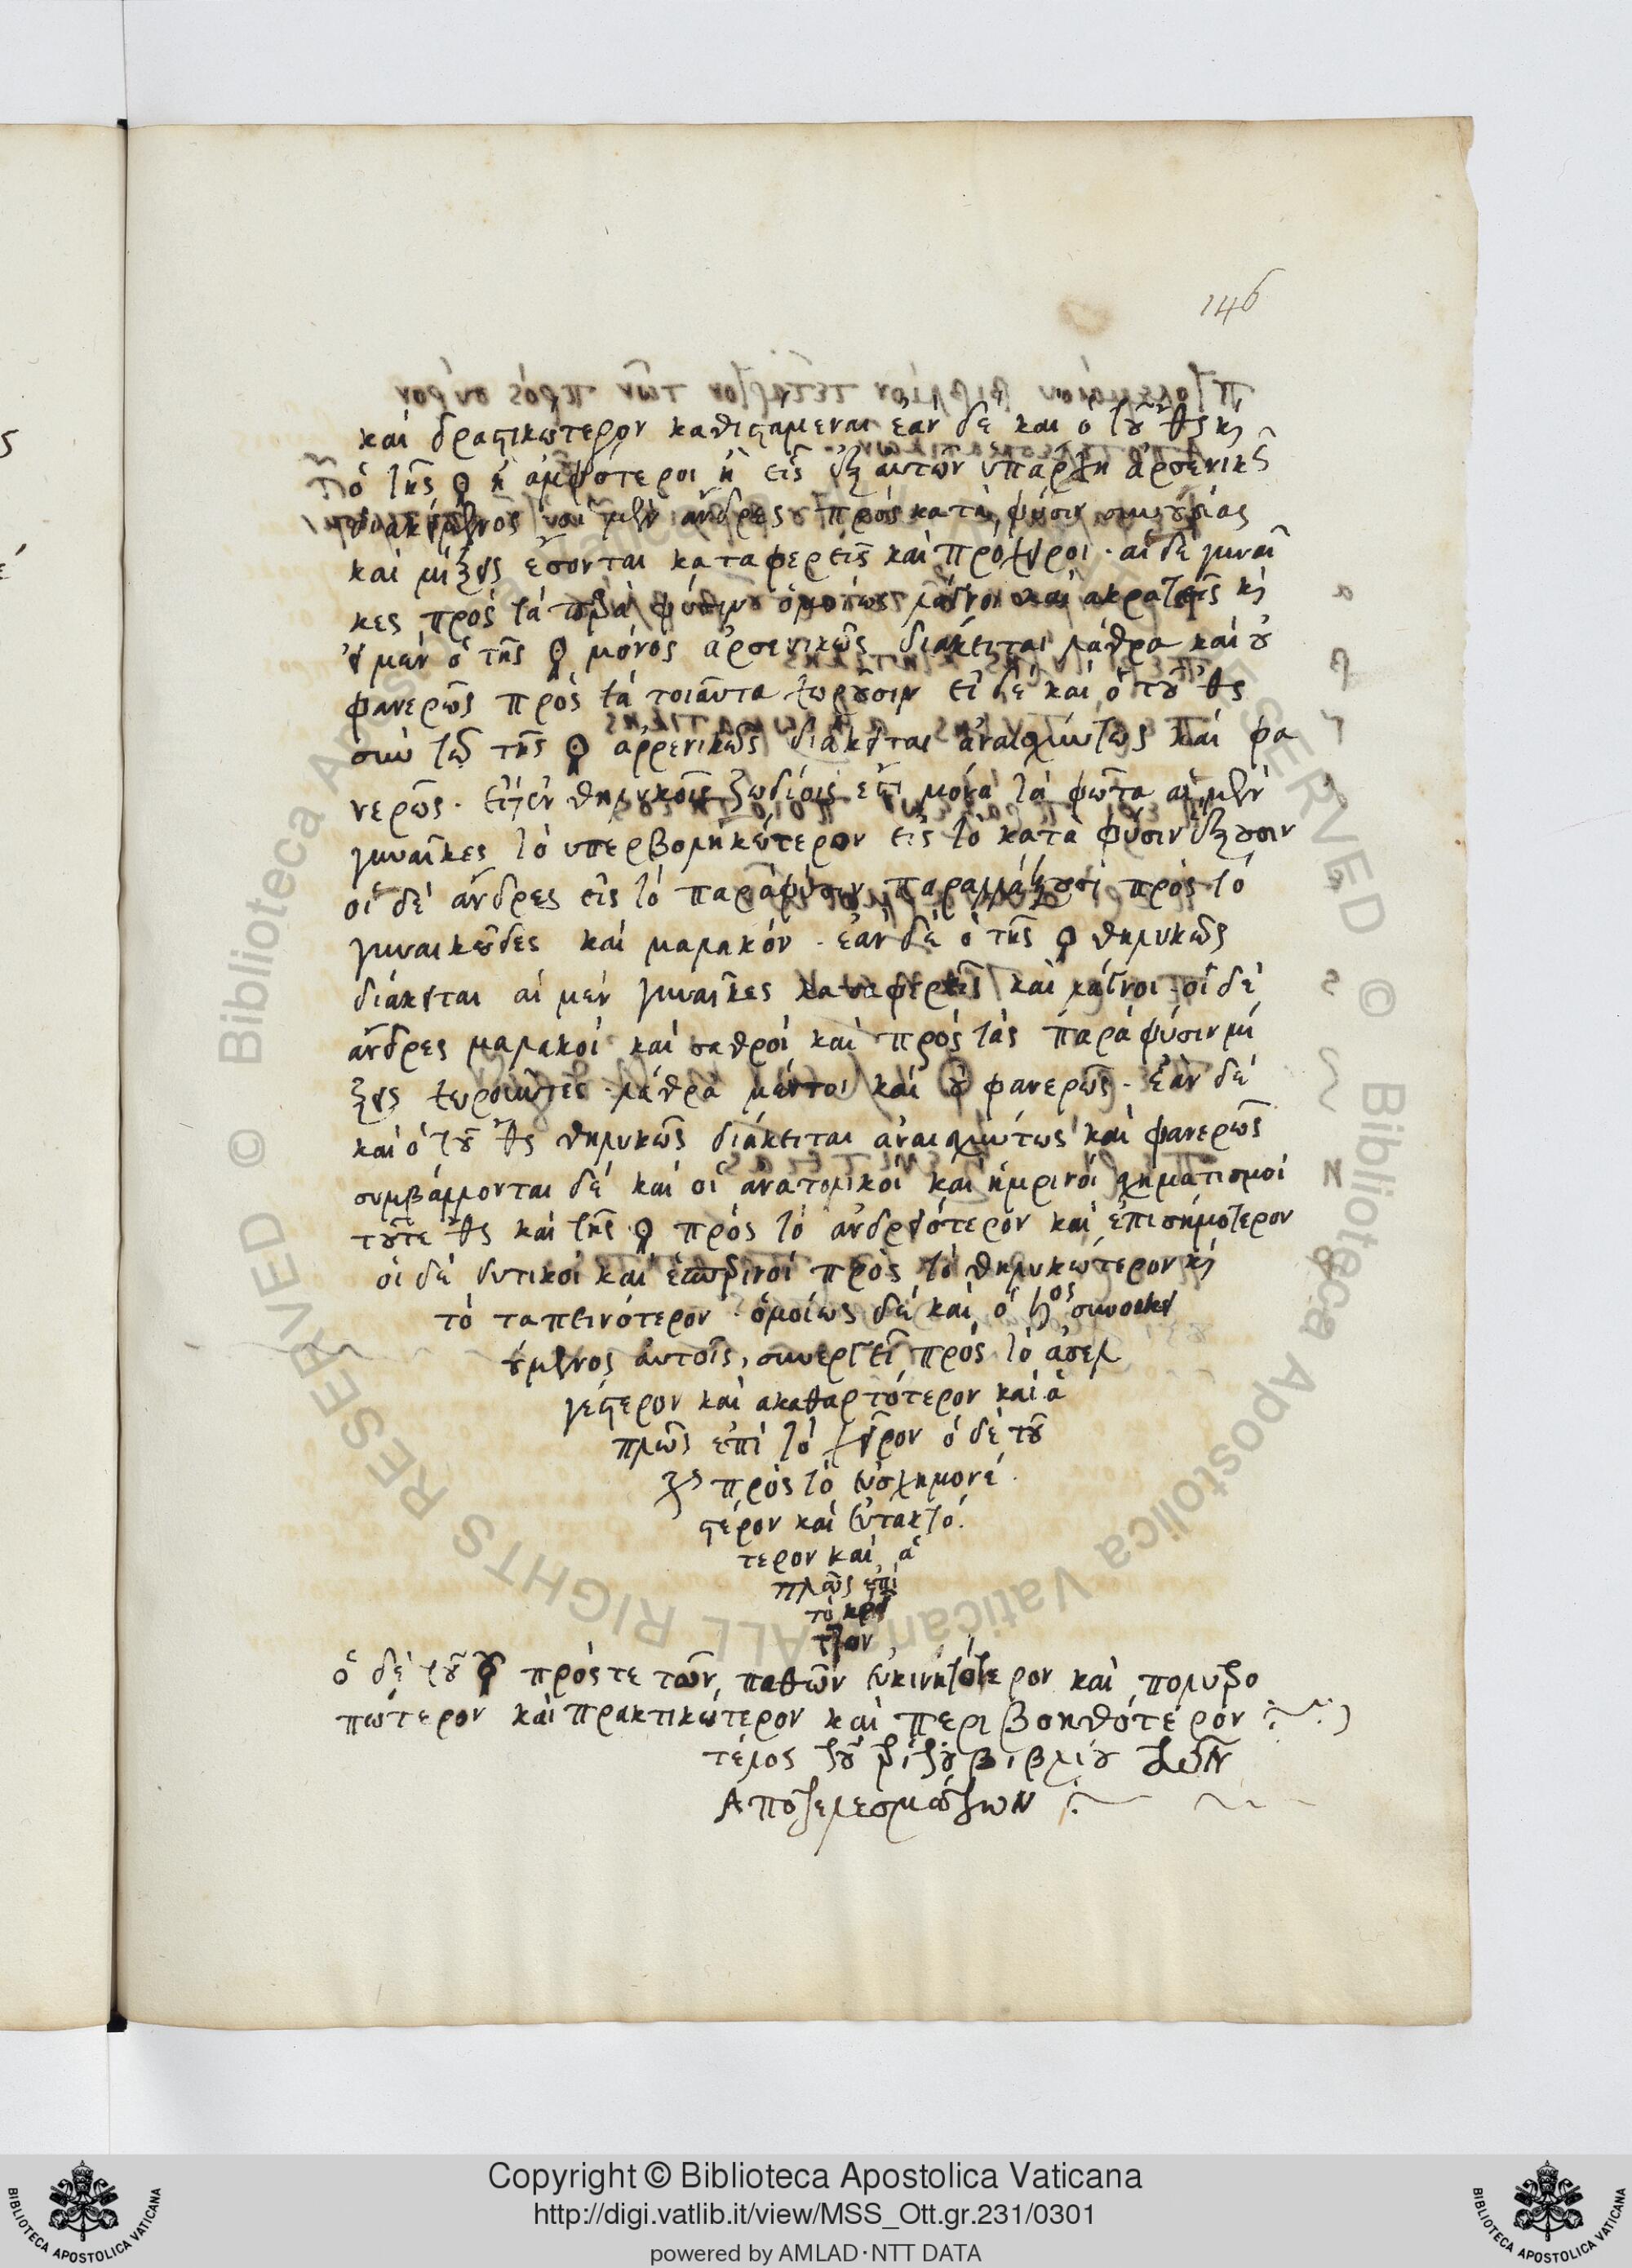 146
καὶ δραστικώτερον καθιστάμεναι ἐὰν δὲ καὶ ὁ τοῦ ♂ς κὶ
ὁ τῆς ♀ ἢ ἀμφότεροι ἢ εἷς ἐξ αὐτῶν ὑπάρχη ἀρσενικῶς
διακείμενος οἱ μὲν ἄνδρες πρὸς κατὰ φύσιν συνουσίας
καὶ μίξεις ἔσονται καταφερεῖς καὶ πρόχειροι · αἱ δὲ γυναῖ
κες πρὸς τὰ παρὰ φύσιν ὁμοίως λάγνοι καὶ ἀκρατεῖς κὶ
εἰ μὲν ὁ τῆς ♀ μόνος ἀρσενικῶς διάκειται λάθρα καὶ οὐ
φανερῶς πρὸς τὰ τοιαῦτα χωροῦσιν εἰ δὲ καὶ ὁ τοῦ ♂ς
σὺν τῷ τῆς ♀ ἀρρενικῶς διάκειται ἀναισχύντως καὶ φα
νερῶς · εἰ ἐν θηλυκοῖς ζωδίοις ἐστὶ μόνα τὰ φῶτα αἱ μὲν
γυναῖκες τὸ ὑπερβολικώτερον εἰς τὸ κατὰ φύσιν ἕξουσιν
οἱ δὲ ἄνδρες εἰς τὸ παρὰ φύσιν παραλλάξουσι πρὸς τὸ
γυναικῶδες καὶ μαλακόν · ἐὰν δὲ ὁ τῆς ♀ θηλυκῶς
διάκειται αἱ μὲν γυναῖκες καταφερεῖς καὶ λάγνοι οἱ δὲ
ἄνδρες μαλακοὶ καὶ σαθροὶ καὶ πρὸς τὰς παρὰ φύσιν μί
ξεις χωροῦντες · λάθρα μέντοι καὶ οὐ φανερῶς · ἐὰν δὲ
καὶ ὁ τοῦ ♂ς θηλυκῶς διάκειται ἀναισχύντως καὶ φανερῶς
συμβάλλονται δὲ καὶ οἱ ἀνατολικοὶ καὶ ἡμρινοὶ σχηματισμοὶ
τοῦτε ♂ς καὶ τῆς ♀ πρὸς τὸ ἀνδρειότερον καὶ ἐπισημότερον
οἱ δὲ δυτικοὶ καὶ ἑσπερινοὶ πρὸς τὸ θηλυκώτερον κὶ
τὸ ταπεινότερον · ὁμοίως δὲ καὶ ὁ ♄ος συνοικει
ούμενος αὐτοῖς, συνεργεῖ πρὸς τὸ ἀσελ
γέστερον καὶ ἀκαθαρτότερον καὶ ἁ
πλῶς ἐπὶ τὸ χεῖρον ὁ δὲ τοῦ
♃ς πρὸς τὸ εὐσχημονέ
στερον καὶ εὐτακτό
τερον καὶ ἁ
πλῶς ἐπὶ
τὸ κρεῖ
ττον
ὁ δὲ τοῦ ☿ πρός τε τῶν παθῶν εὐκινητότερον καὶ πολυτρο
πώτερον καὶ πρακτικώτερον καὶ περιβοηθότερον
τέλος τοῦ βιβλίου τῶν
Ἀποτελεσμάτων